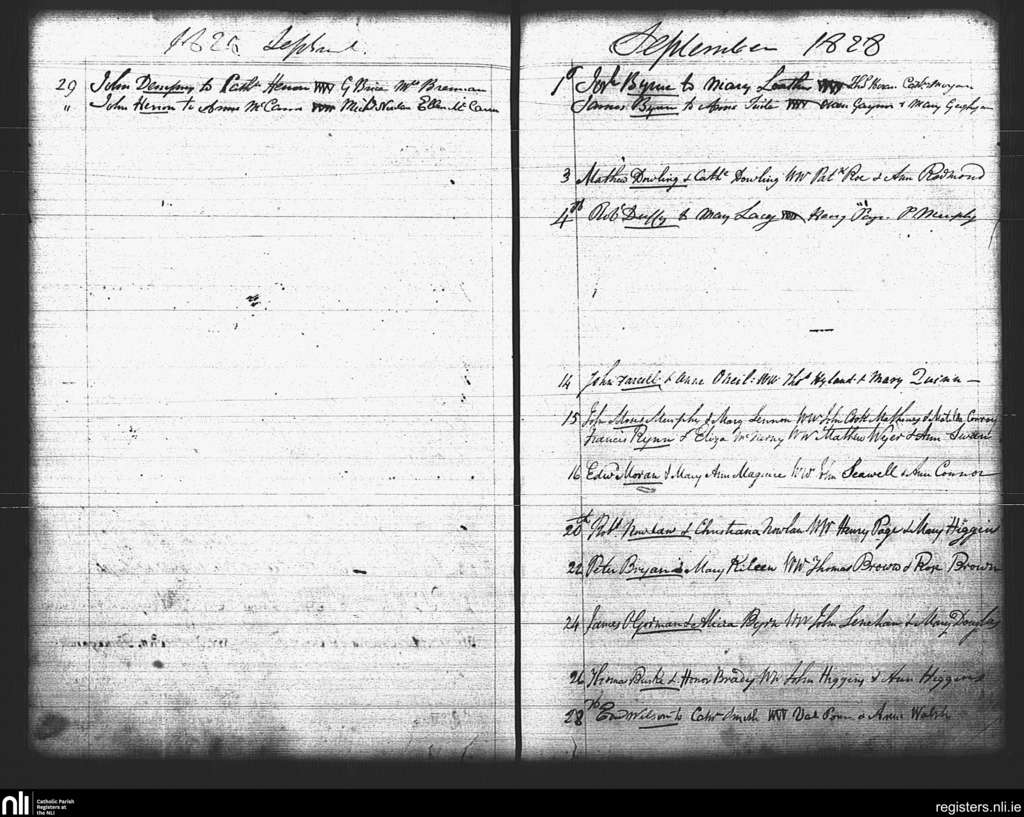 1828 Septem
29 John Dempsey to Cath. Heron WW G Brien Mr Brennan
" John Heron to Anne McCann WW Michl Nowlan Ellen McCann
September 1828
1st Byrne to Mary WW Thos Cath Morgan
James Byrne to Anne WW Owen Gaynor & Mary
3 Mathew Dowling & Cathe Dowling WW Patk Roe & Ann Redmond
4th Robt Duffy to Mary Lacy WW Harry P Murphy
14 John Farrell & Anne ONeil: WW Thos Hyland & Mary Quinn
15 John Murphy & Mary Lennon WW John
Francis Rynn & Eliza WW Mathew Wyer & Ann Swan
16 Edwd Moran & Mary Ann Maguire WW John Seawell & Ann Connor
20th Robt Nowlan & Christiana Nowlan WW Henry Page & Mary Higgin
22 Peter Bryan & Mary Kileen WW Thomas Brown & Rose Brown
24 James OGorman & Alicia Byrn WW John Lenehan & Mary Douglas
26 Thomas Burke & Honor Brady WW John Higgins & Ann Higgins
28th Edwd Wilson to Cathe Smith WW Val & Anne Walsh
nli Catholic Parish
Registers at
the NLI
registers.nli.ie